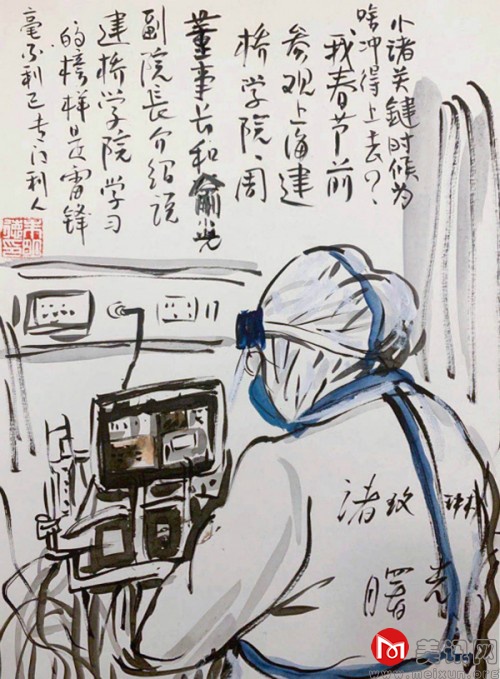 小诸关键时候为
啥冲得上去？，
我春节前
参观上海建
桥学院，周
董事长和俞光
副院长介绍说
建桥学院学习
的榜样是雷锋
毫不利己专门利人
诸玫琳
曙光
美讯网
www.meixun.org